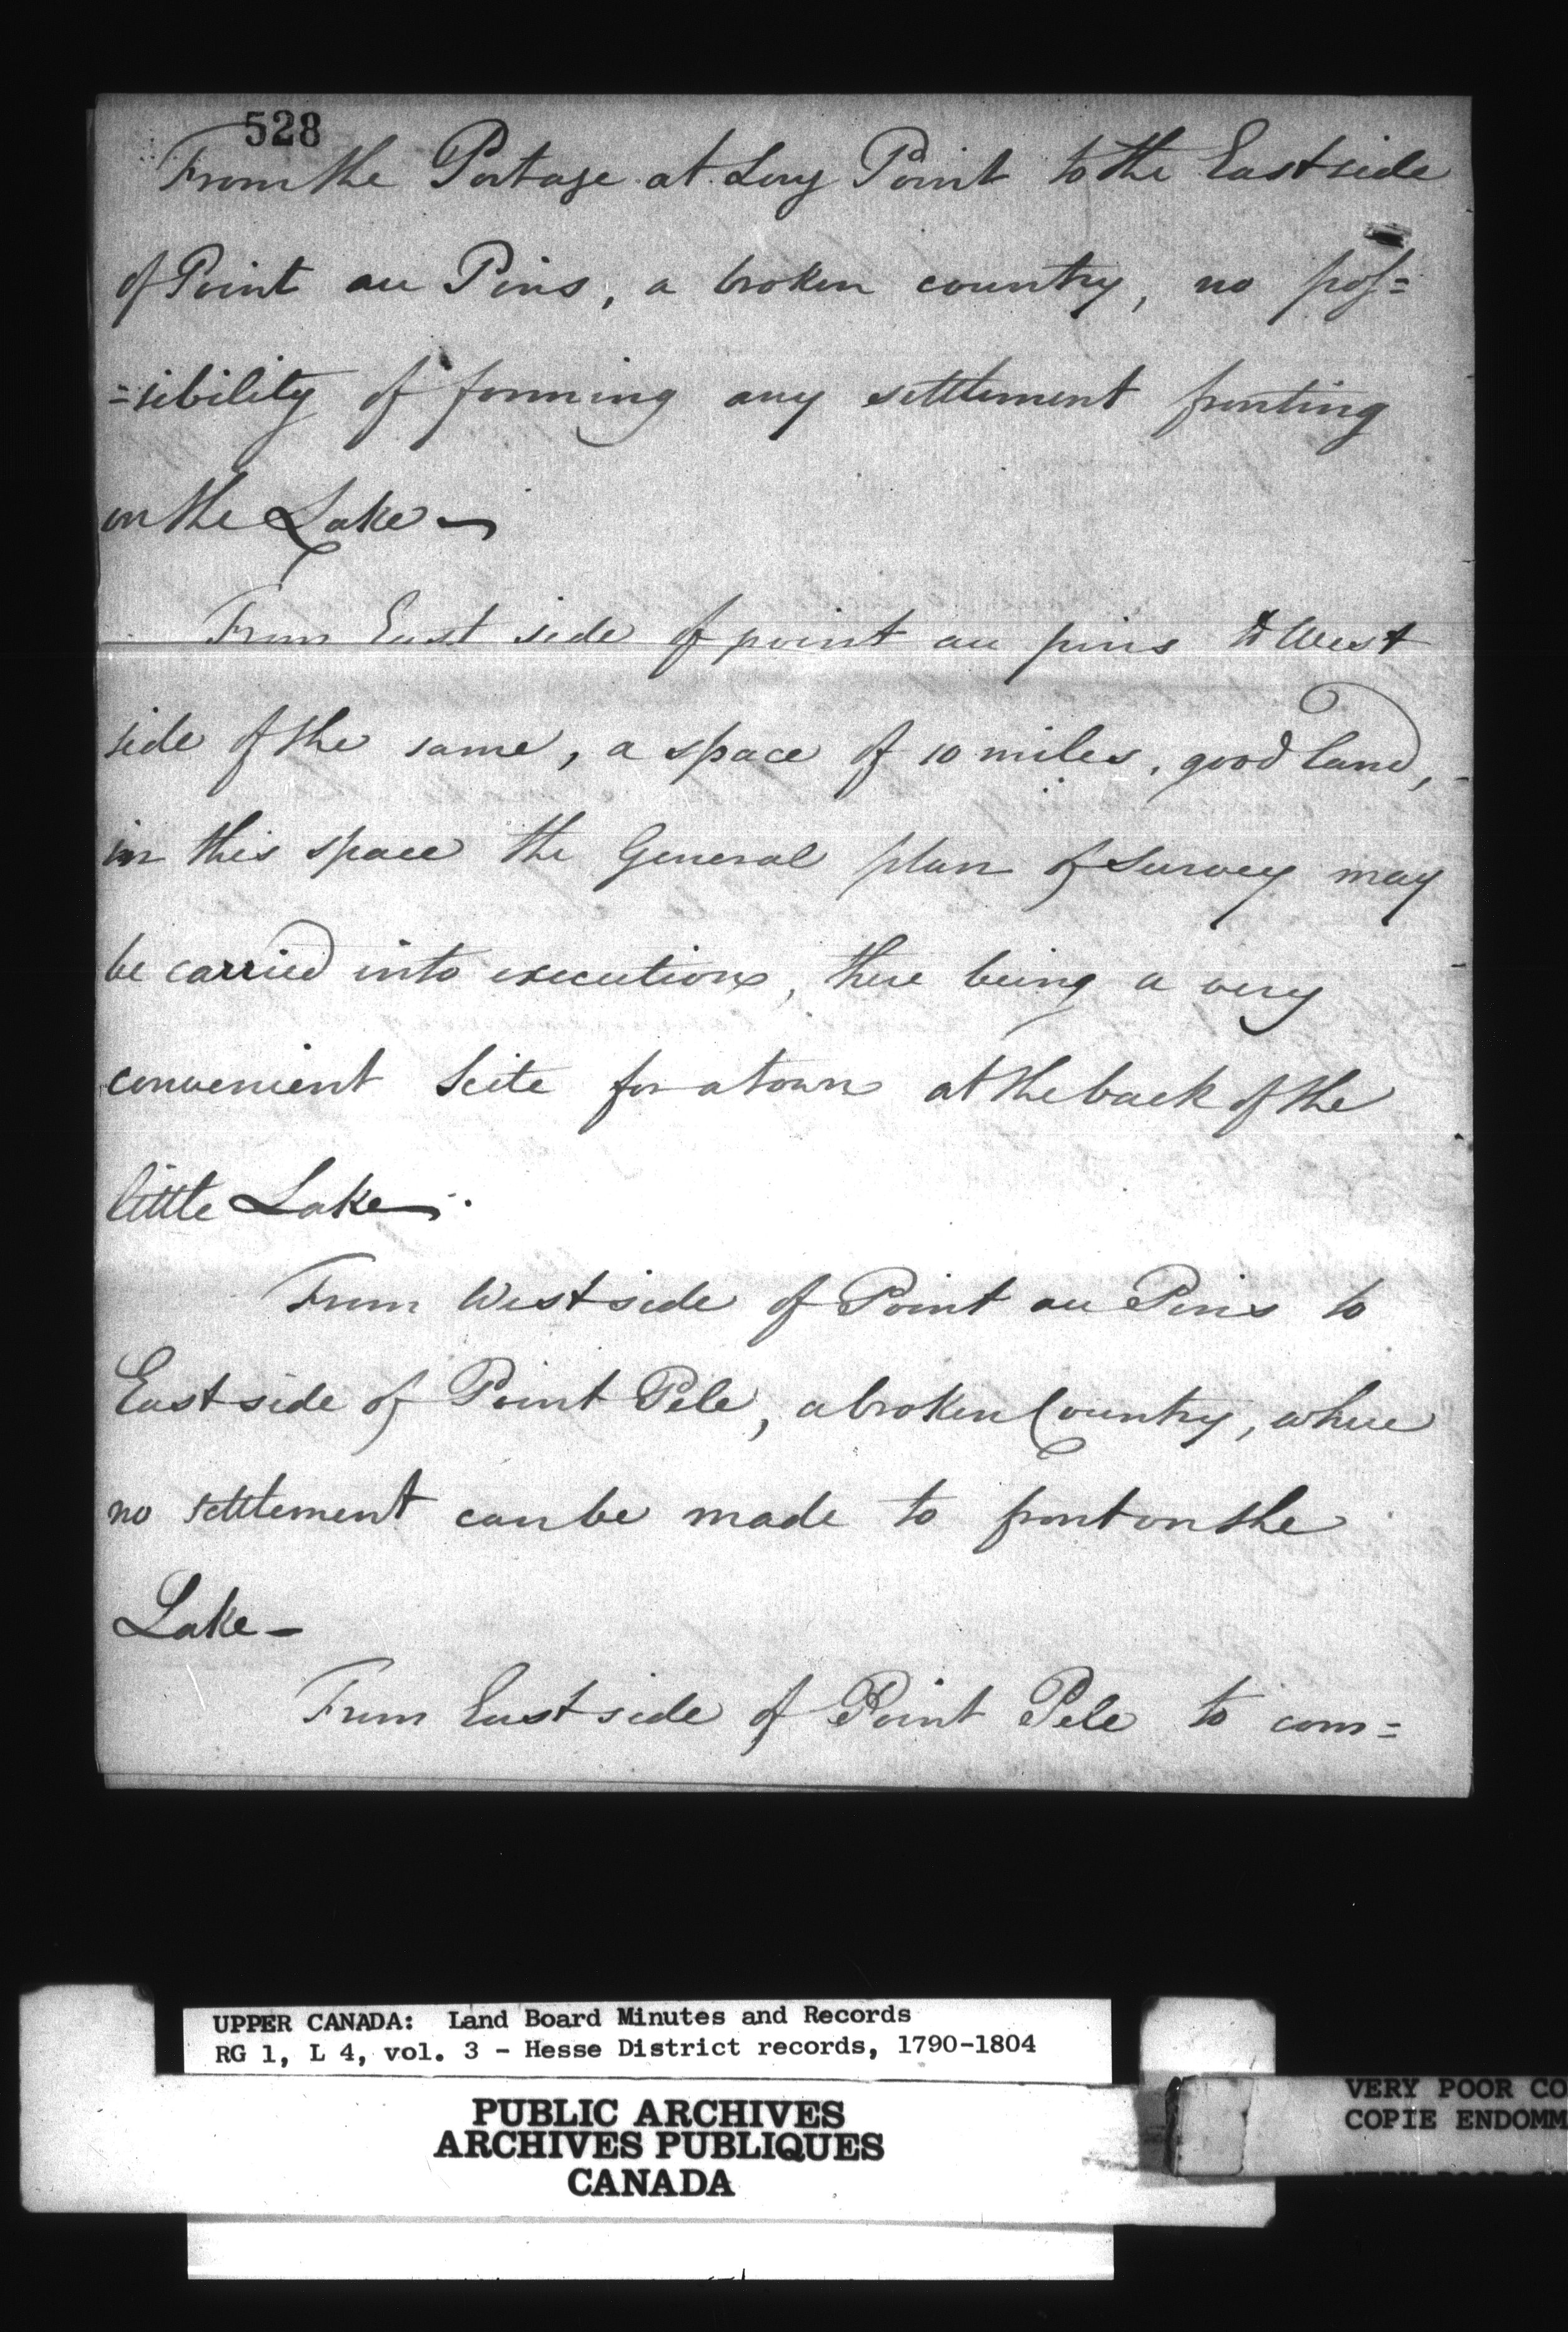 528
From the Portage at Long Point to the East side
of Point au Pins, a broken country, no pos=
=sibility of forming any settlement fronting
on the Lake —
From East side of point au pins to West
side of the same, a space of 10 miles, good land,
in this space the General plan of Survey may
be carried into execution, there being a very
convenient Scite for a town at the back of the
little Lake —.
From West side of Point au Pins to
East side of Point Pele, a broken Country, where
no settlement can be made to front on the
Lake —
From East side of Point Pele to com=
UPPER CANADA: Land Board Minutes and Records
RG 1, L 4, vol. 3 - Hesse District records, 1790-1804
PUBLIC ARCHIVES
ARCHIVES PUBLIQUES
CANADA
VERY POOR CO
COPIE ENDOMM